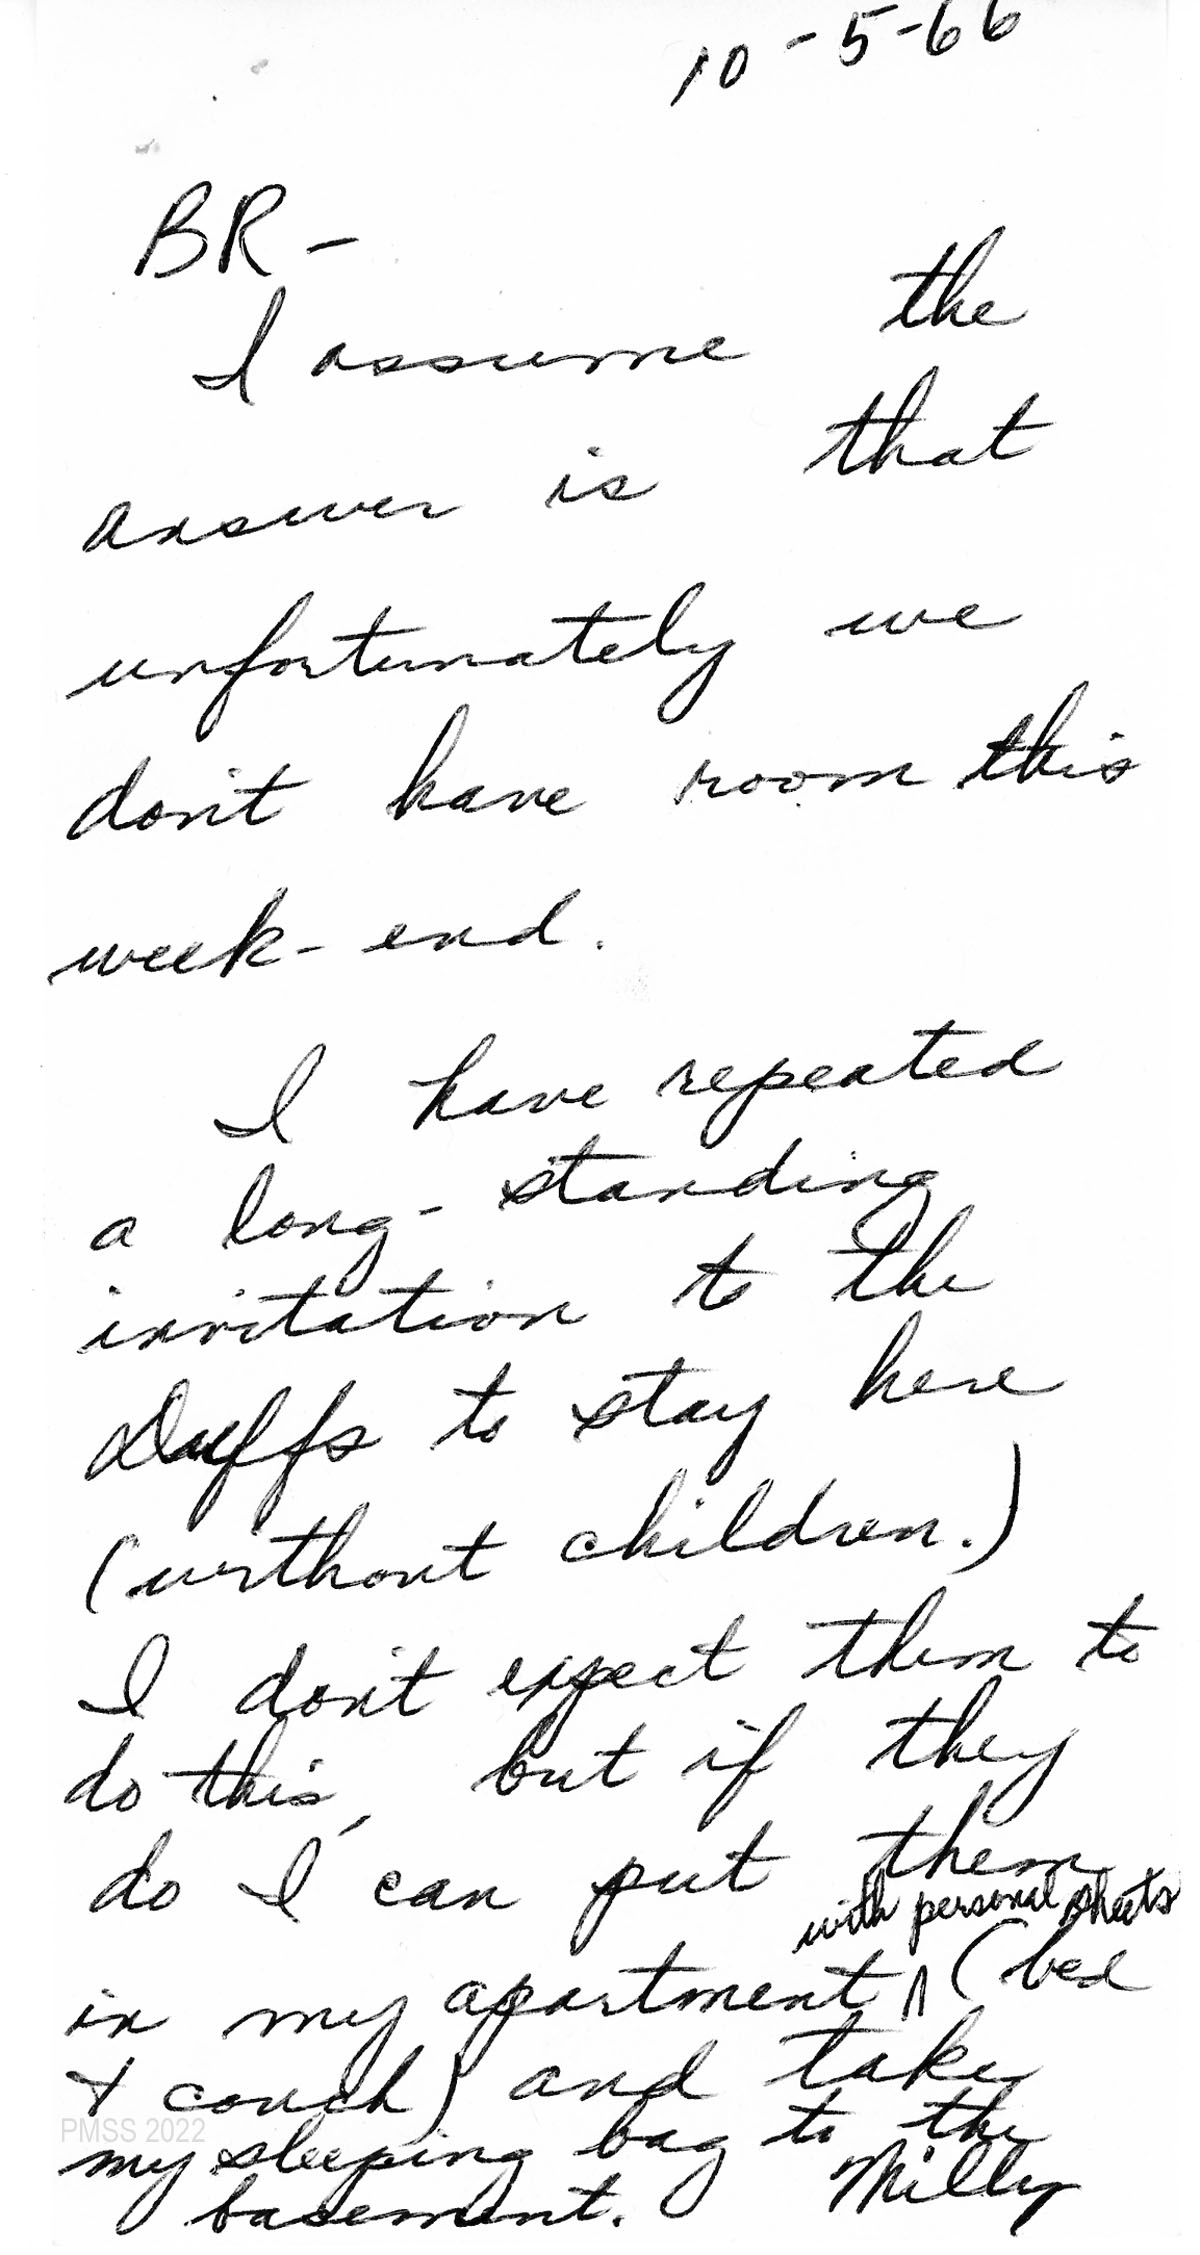 10-5-66
BR -
I assume the
answer is that
unfortunately we
don't have room this
week-end.
I have repeated
a long-standing
invitation to the
Duffs to stay here
(without children.)
I don't expect them to
do this, but if they
do I can put them
with personal sheets
in my apartment ^ (bed
+ couch) and take
PMSS 2022
my sleeping bag to the
basement. Milly